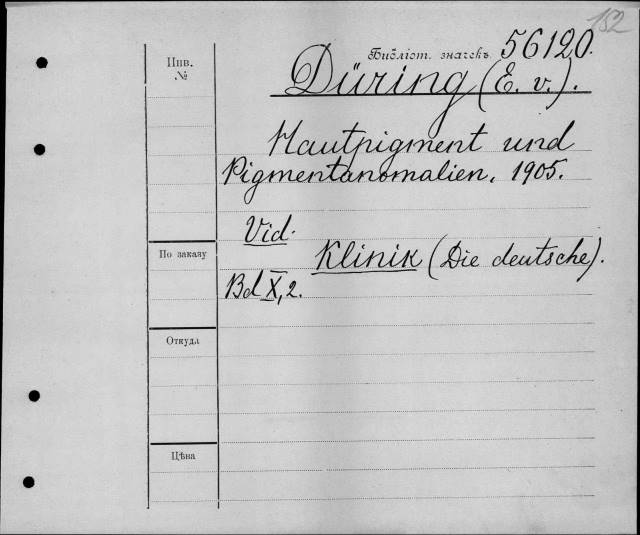 152
Библіот. значекъ 56120.
Инв.
№
Düring (E. v.).
Hautpigment und
Pigmentanomalien. 1905.
Vid.
По заказу
Klinik (Die deutsche).
Bd X, 2.
Откуда
Цѣна